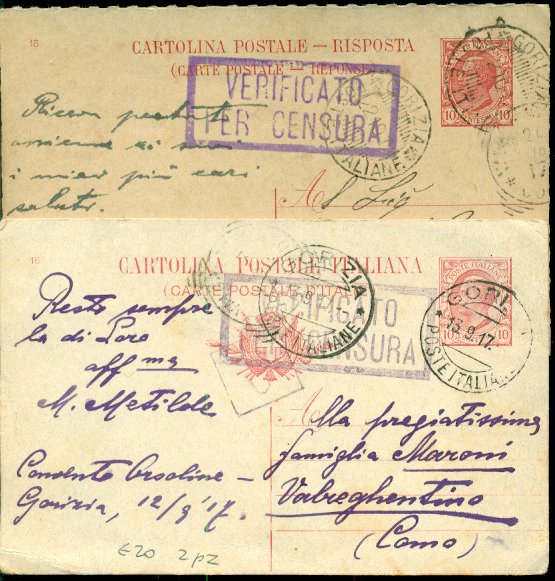 16
CARTOLINA POSTALE — RISPOSTA
(CARTE POSTALE — RÉPONSE)
VERIFICATO
PER CENSURA
GORIZIA
ITALIANE
10 10
GORIZIA
i miei più cari
saluti.
Al Sig
16
CARTOLINA POSTALE ITALIANA
(CARTE POSTALE D'ITALIE)
VERIFICATO
PER CENSURA
GORIZIA
POSTE ITALIANE
POSTE ITALIANE
10 10
GORI
13.9.17
POSTE ITALIA
Resto sempre
la di Loro
aff ma
M. Metilde
Convento Orsoline –
Gorizia, 12/9 '17.
Alla pregiatissima
famiglia Maroni
Valgreghentino
(Como)
€20 2pz